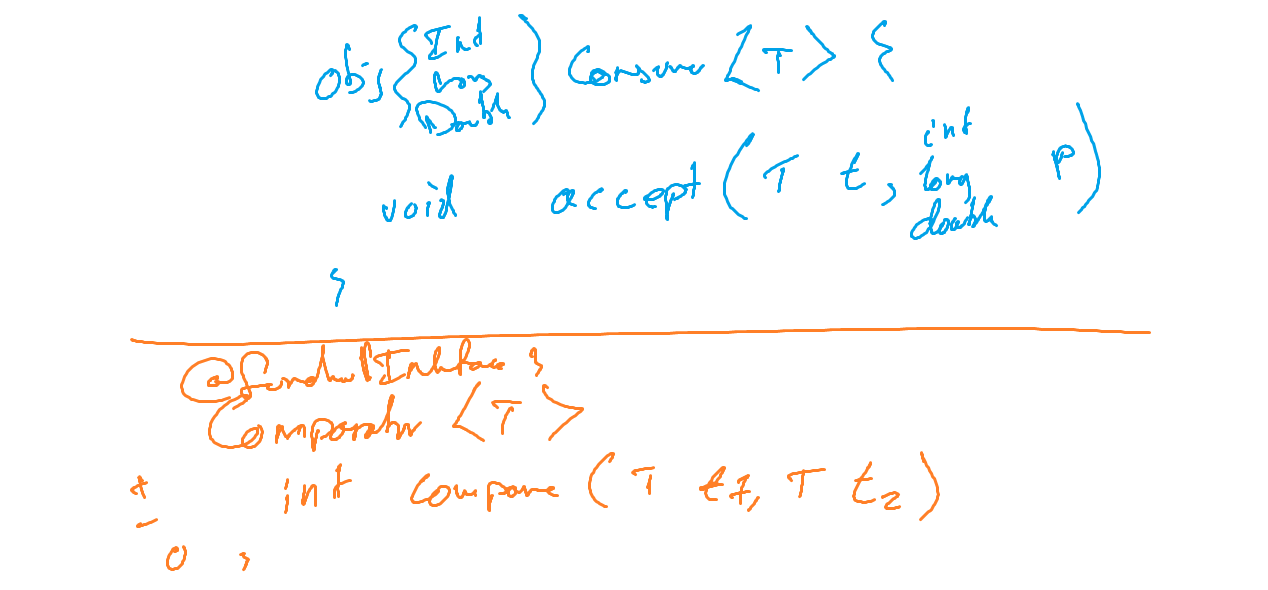 Obj { Int Consumer <T> {
Long
Double }
void accept ( T t, int p )
long
double
}
@FunctionalInterface {
Comparator <T>
+ int compare ( T t1, T t2 )
-
0 }